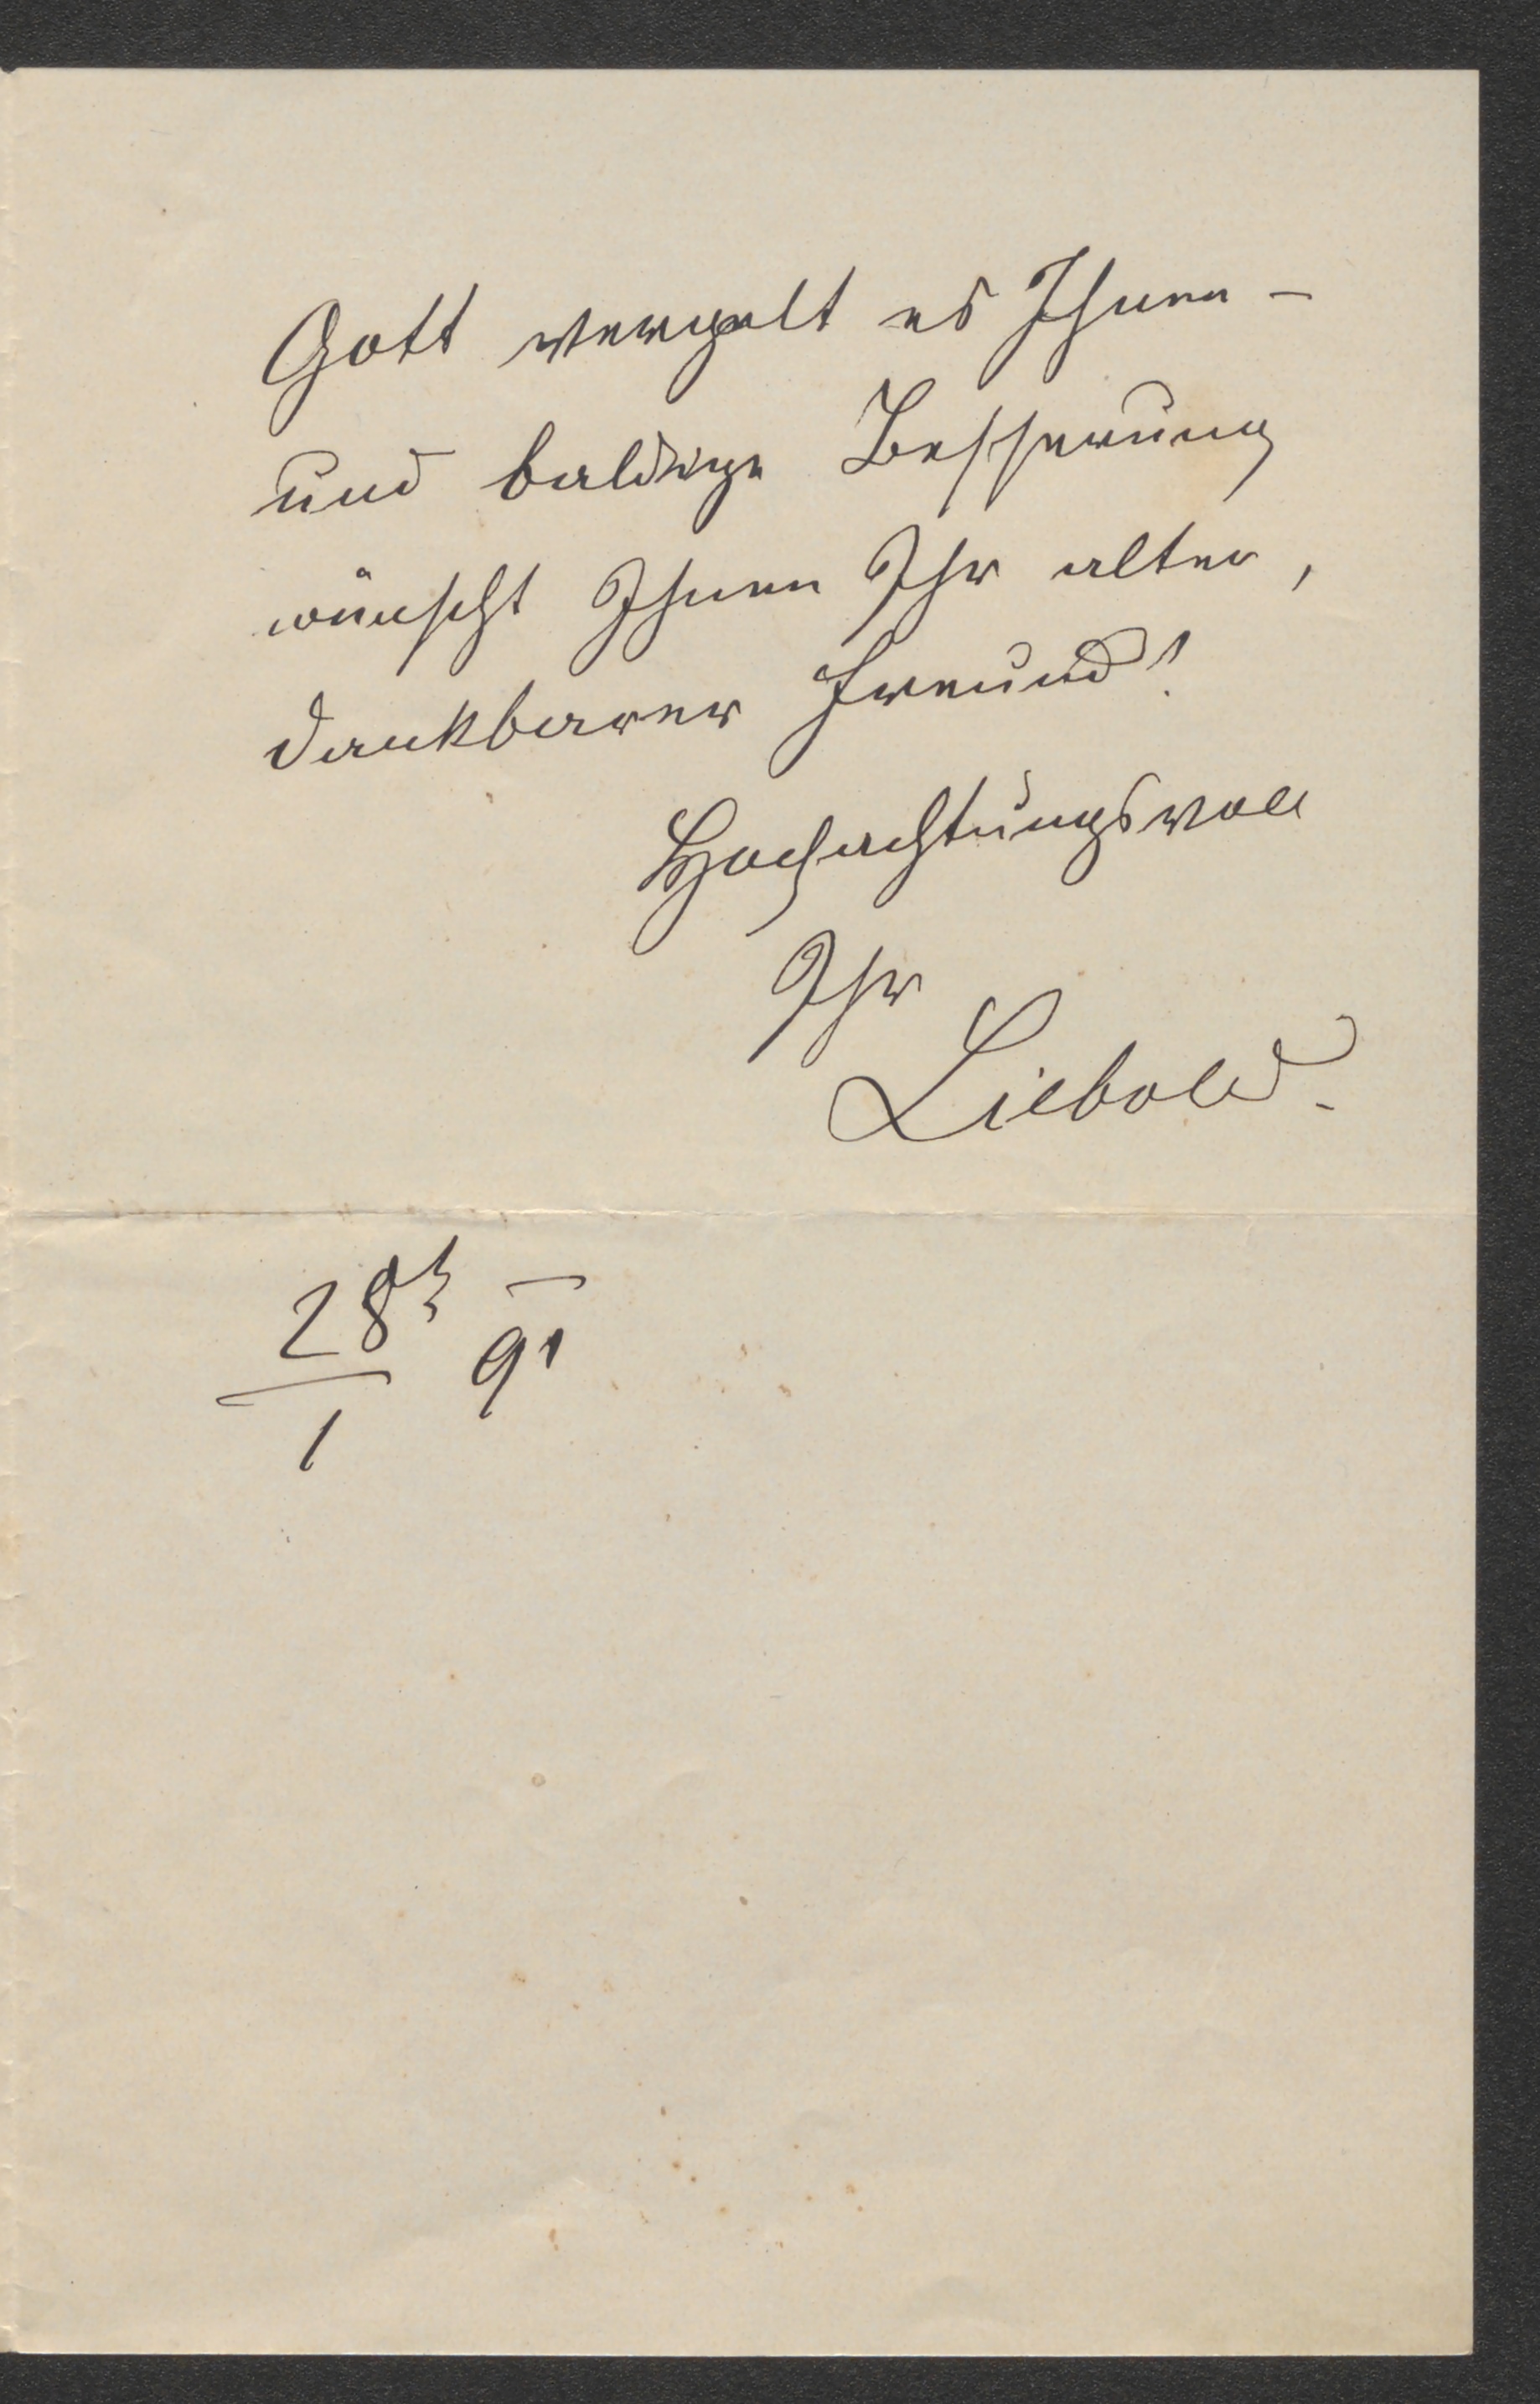 Gott vergelt es Ihnen –
und baldige Besserung
wünscht Ihnen Ihr alter,
dankbarer Freund!
Hochachtungsvoll
Ihr
Liebold.
28/1 91